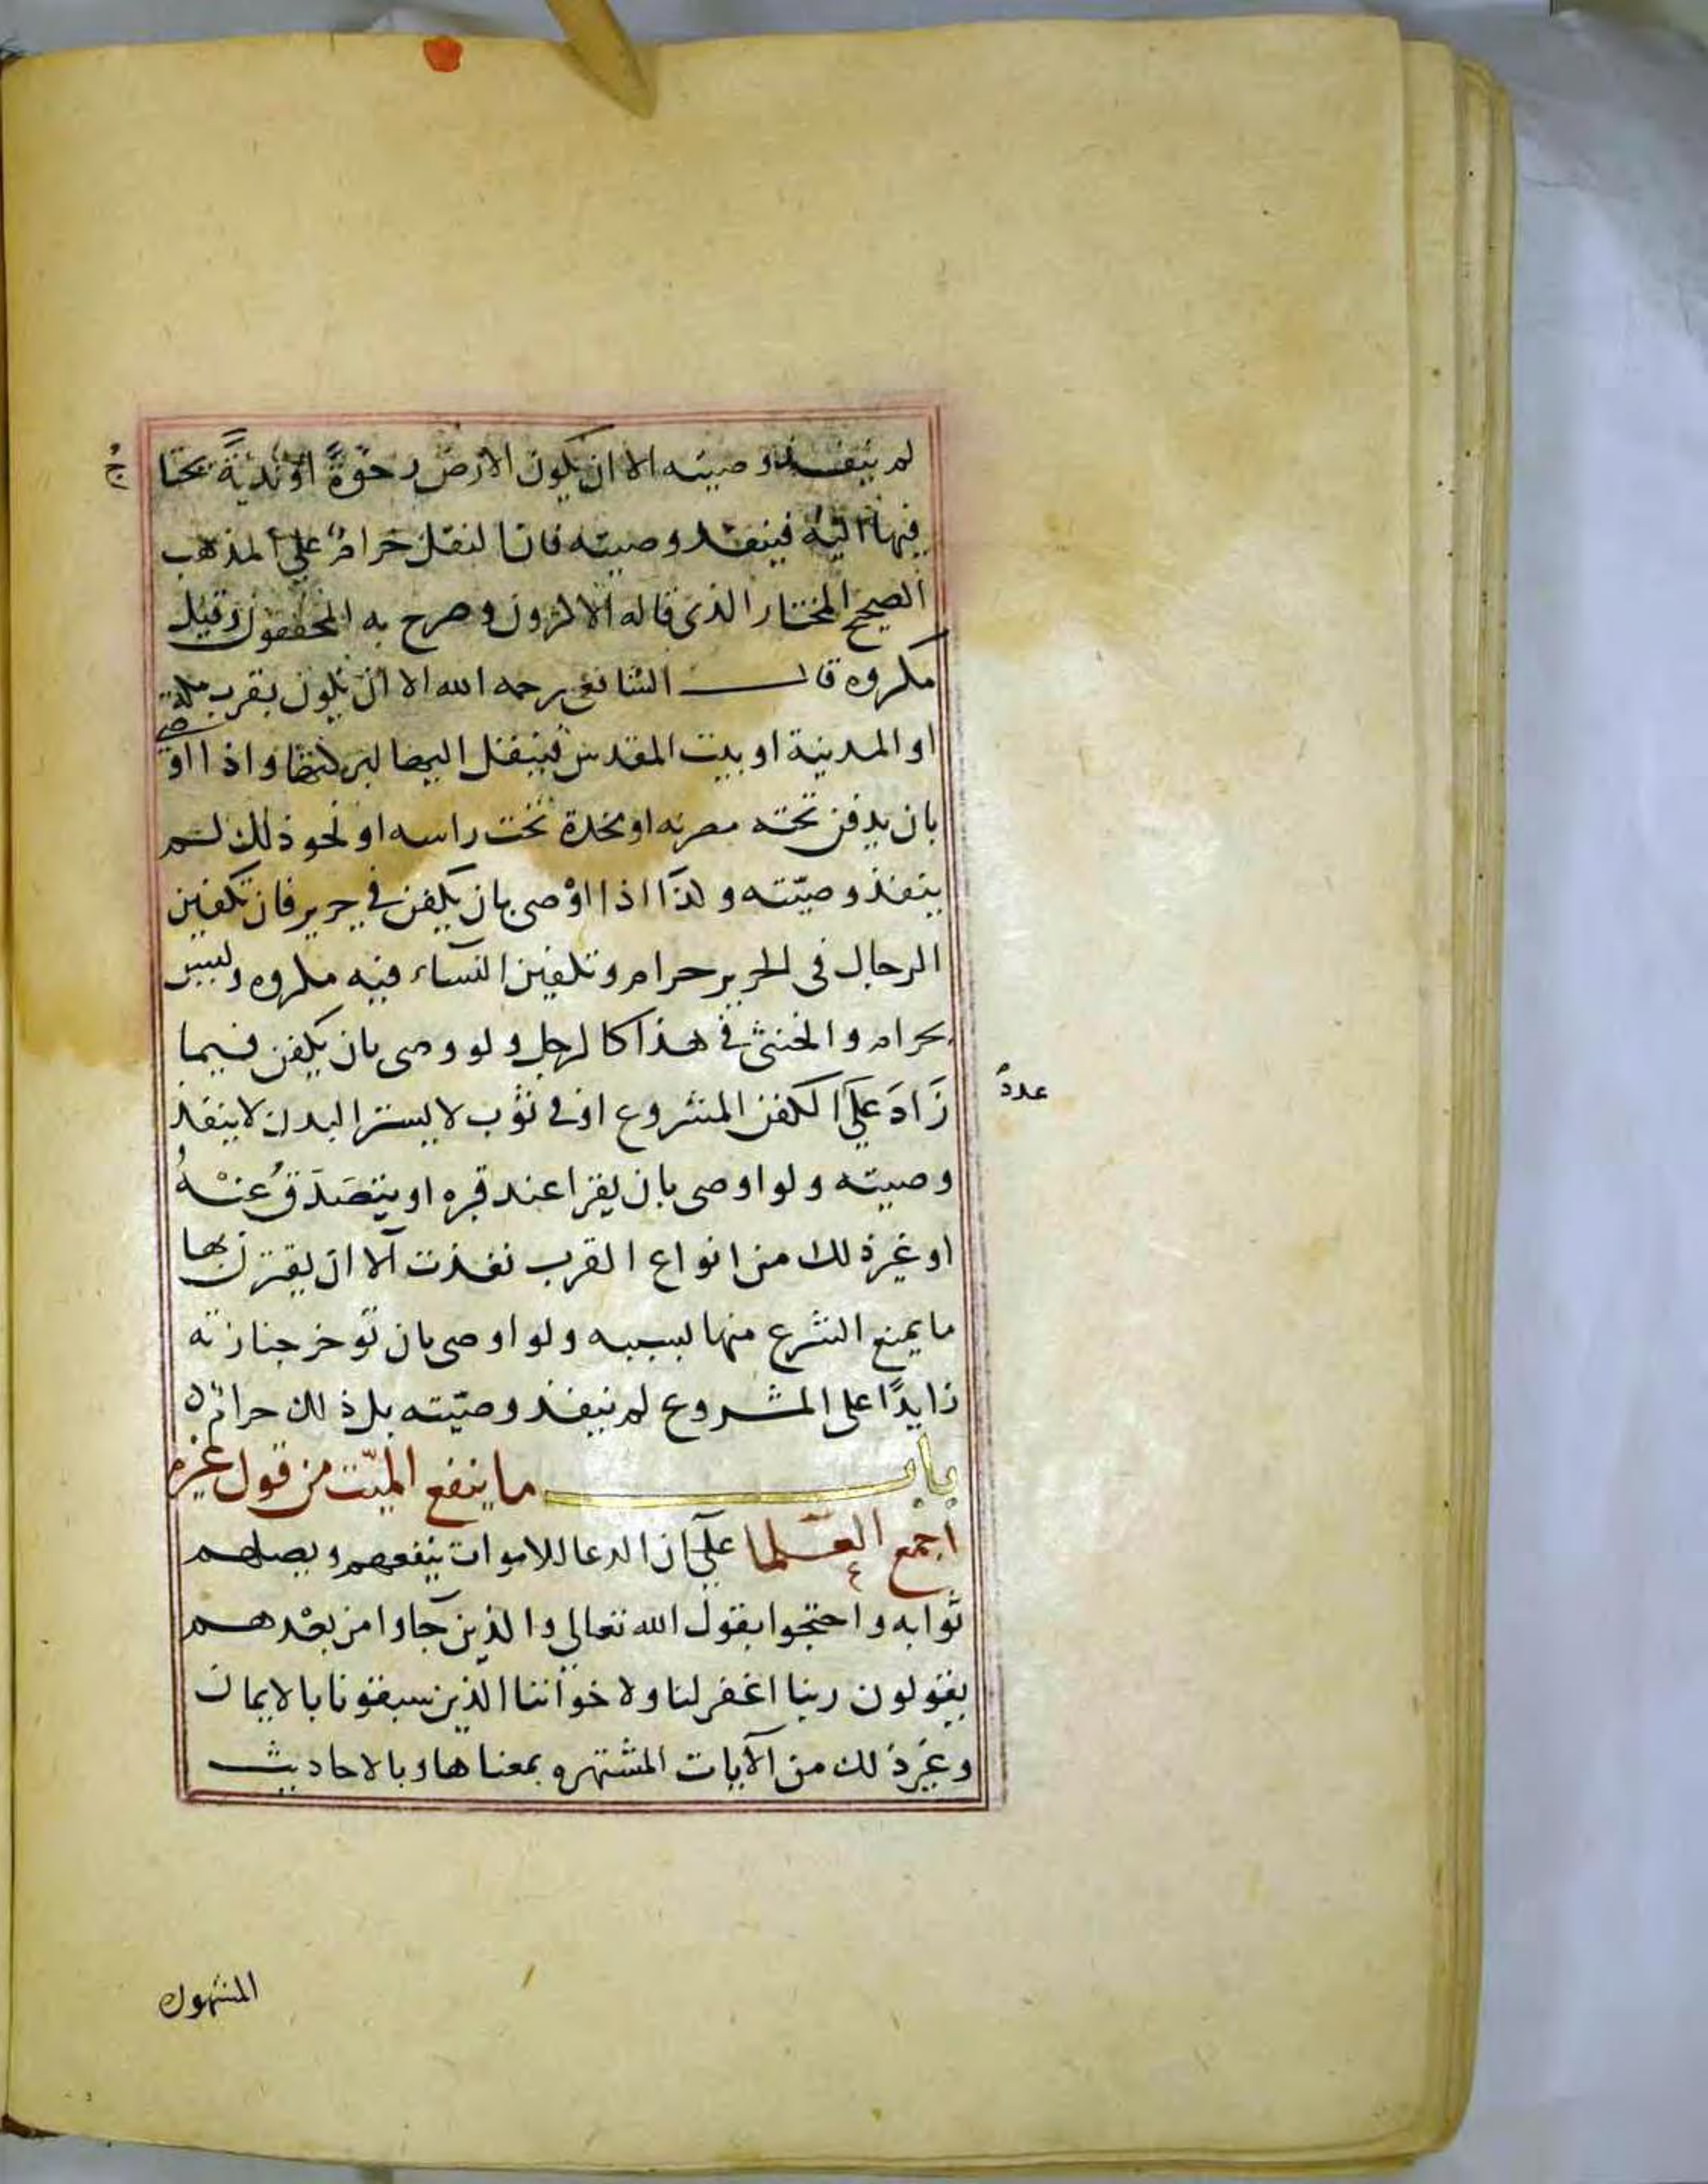 لم ينفذ وصيته الا ان يكون الارض رخوةً او نديةً يحتا
ج
فيها اليه فينفذ وصيته فان النقل حرامٌ على المذهب
الصحيح المختار الذى قاله الاكثرون وصرح به المحققون وقيل
مكروه قال الشافعى رحمه الله الا ان يكون بقرب مكة
او المدينة او بيت المقدس فينقل اليها لبركتها واذا اوصى
بان يدفن تحته مضربه او مخدة تحت راسه او نحو ذلك لم
ينفذ وصيّته وكذا اذا اوْصى بان يكفن في حرير فان تكفين
الرجال فى الحرير حرام وتكفين النساء فيه مكروه وليس
بحرام والخنثى في هذا كالرجل ولو وصى بان يكفن فيما
زَادَ عَلَى الكفن المشروع او في ثوب لا يستر البدن لا ينفذ
عدد
وصيته ولو اوصى بان يقرا عند قبره او يتصَدَقُ عنْهُ
او غير ذلك من انواع القرب نفذت الا ان يقترن بها
ما يمنع الشرع منها بسببه ولو اوصى بان توخر جنازته
زايدًا على المشروع لم ينفذ وصيّته بل ذلك حرامٌ ه
باب ما ينفع الميّت من قول غيره
اجمع العلما على ان الدعا للاموات ينفعهم ويصلهم
ثوابه واحتجوا بقول الله تعالي والذين جاوا من بعْدهم
يقولون ربنا اغفر لنا ولاخواننا الذين سبقونا بالايمان
وغير ذلك من الآيات المشتهره بمعناها وبالاحاديث
المشهوره